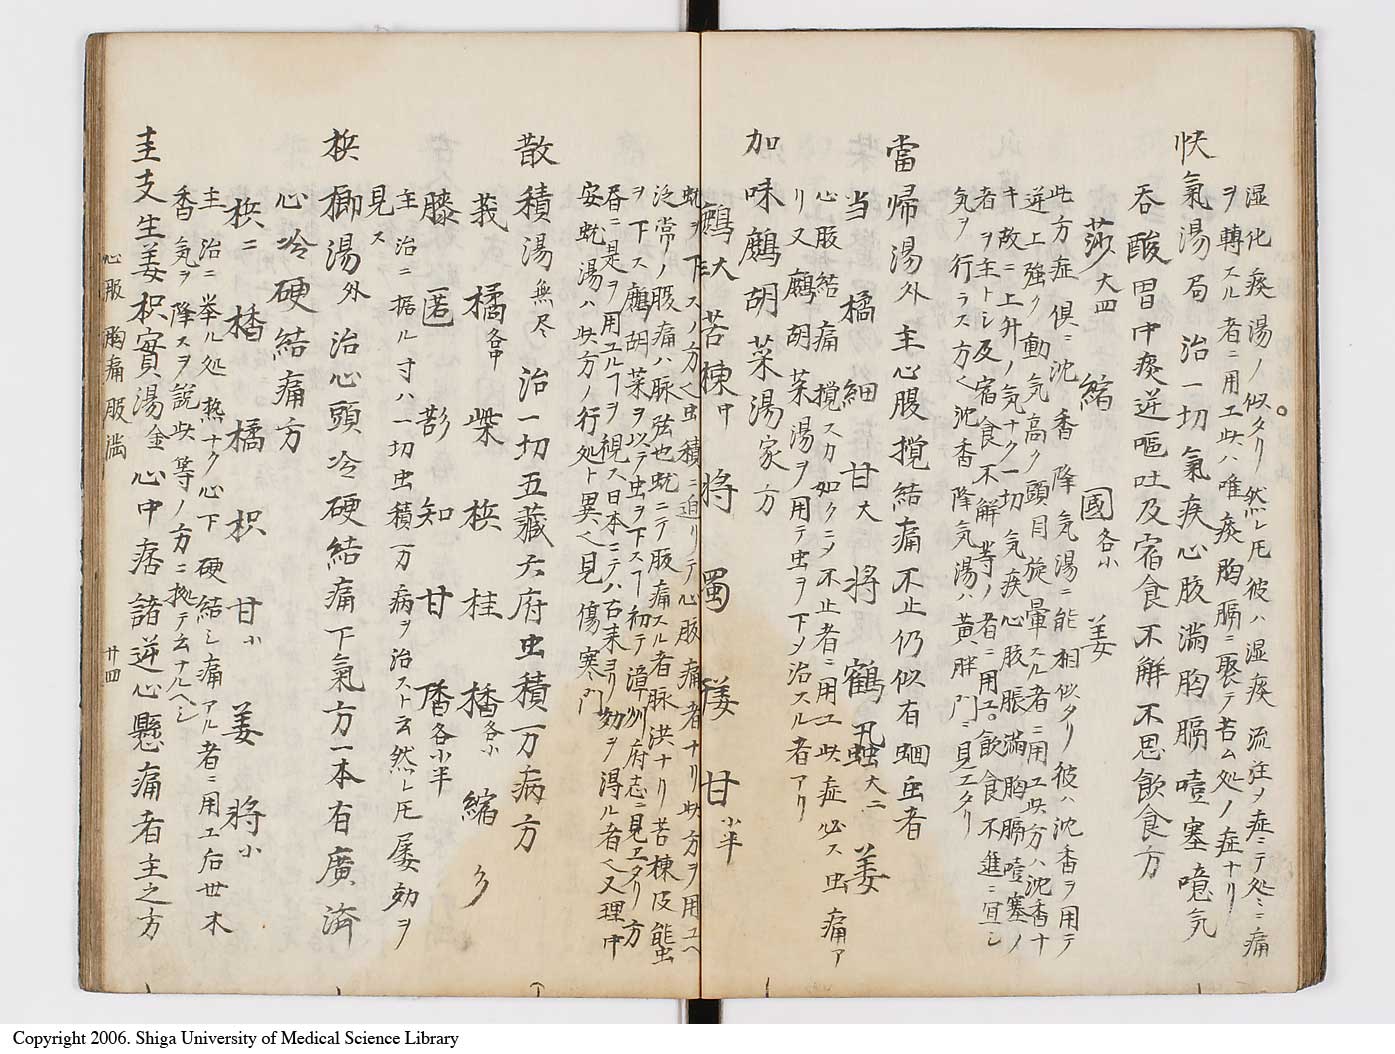 湿化痰湯ノ似タリ然レ𪜈彼ハ湿痰流注ノ症ニテ処々ニ痛
ヲ轉スル者ニ用エ此ハ唯痰胸膈ニ聚テ苦ム処ノ症ナリ
快氣湯局 治一切氣疾心腹満胸膈噎塞噫気
呑酸胃中痰逆嘔吐及宿食不解不思飲食方
莎大四 縮 國各小 姜
此方症倶ニ沈香降気湯ニ能相似タリ彼ハ沈香ヲ用テ
逆上強ク動気高ク頭目旋暈スル者ニ用エ此方ハ沈香ナ
キ故ニ上升ノ気ナク一切気疾心腹脹満胸膈噎塞ノ
者ヲ主トシ及宿食不解等ノ者ニ用エ。飲食不進ニ宜シ
気ヲ行ラス方也沈香降気湯ハ黄胖門ニ見エタリ
當帰湯外 主心腹搅結痛不止仍似有蛔虫者
当 橘 細 甘大 将 鶴虱大二 姜
心腹結痛搅スカ如クニメ不止者ニ用エ此症必ス虫痛ア
リ又鷓胡菜湯ヲ用テ虫ヲ下メ治スル者アリ
加味鷓胡菜湯家方
鷓大 苦楝中 将 蜀 倭 甘小半
蚘ヲ下スノ方也虫積ニ迫リテ心腹痛者ナリ此方ヲ用ユヘ
泛常ノ腹痛ハ脉弦也蚘ニテ腹痛スル者脉洪ナリ苦楝皮能虫
ヲ下ス鷓胡菜ヲ以テ虫ヲ下スヿ初テ漳州府志ニ見エタリ方
書ニ是ヲ用ユルヿヲ視ス日本ニテハ古来ヨリ効ヲ得ル者也又理中
安蚘湯ハ此方ノ行処ト異也見傷寒門
散積湯無尽 治一切五藏六府虫積万病方
莪 橘各中 柴 梹 桂 㮽各小 縮 夕
藤 匿 莎 知 甘 唐各小半
主治ニ据ル寸ハ一切虫積万病ヲ治スト云然レ𪜈屡効ヲ
見ス
梹榔湯外 治心頭冷硬結痛下氣方一本有廣濟
心冷硬結痛方
梹二 橘 枳 甘小 姜 将小
主治ニ挙ル処熱ナク心下硬結シ痛アル者ニ用エ后世木
香気ヲ降スヲ説此等ノ方ニ拠テ云ナルヘシ
圭支生姜枳實湯金 心中痞諸逆心懸痛者主之方
心腹 胸痛腹満 廿四
Copyright 2006. Shiga University of Medical Science Library